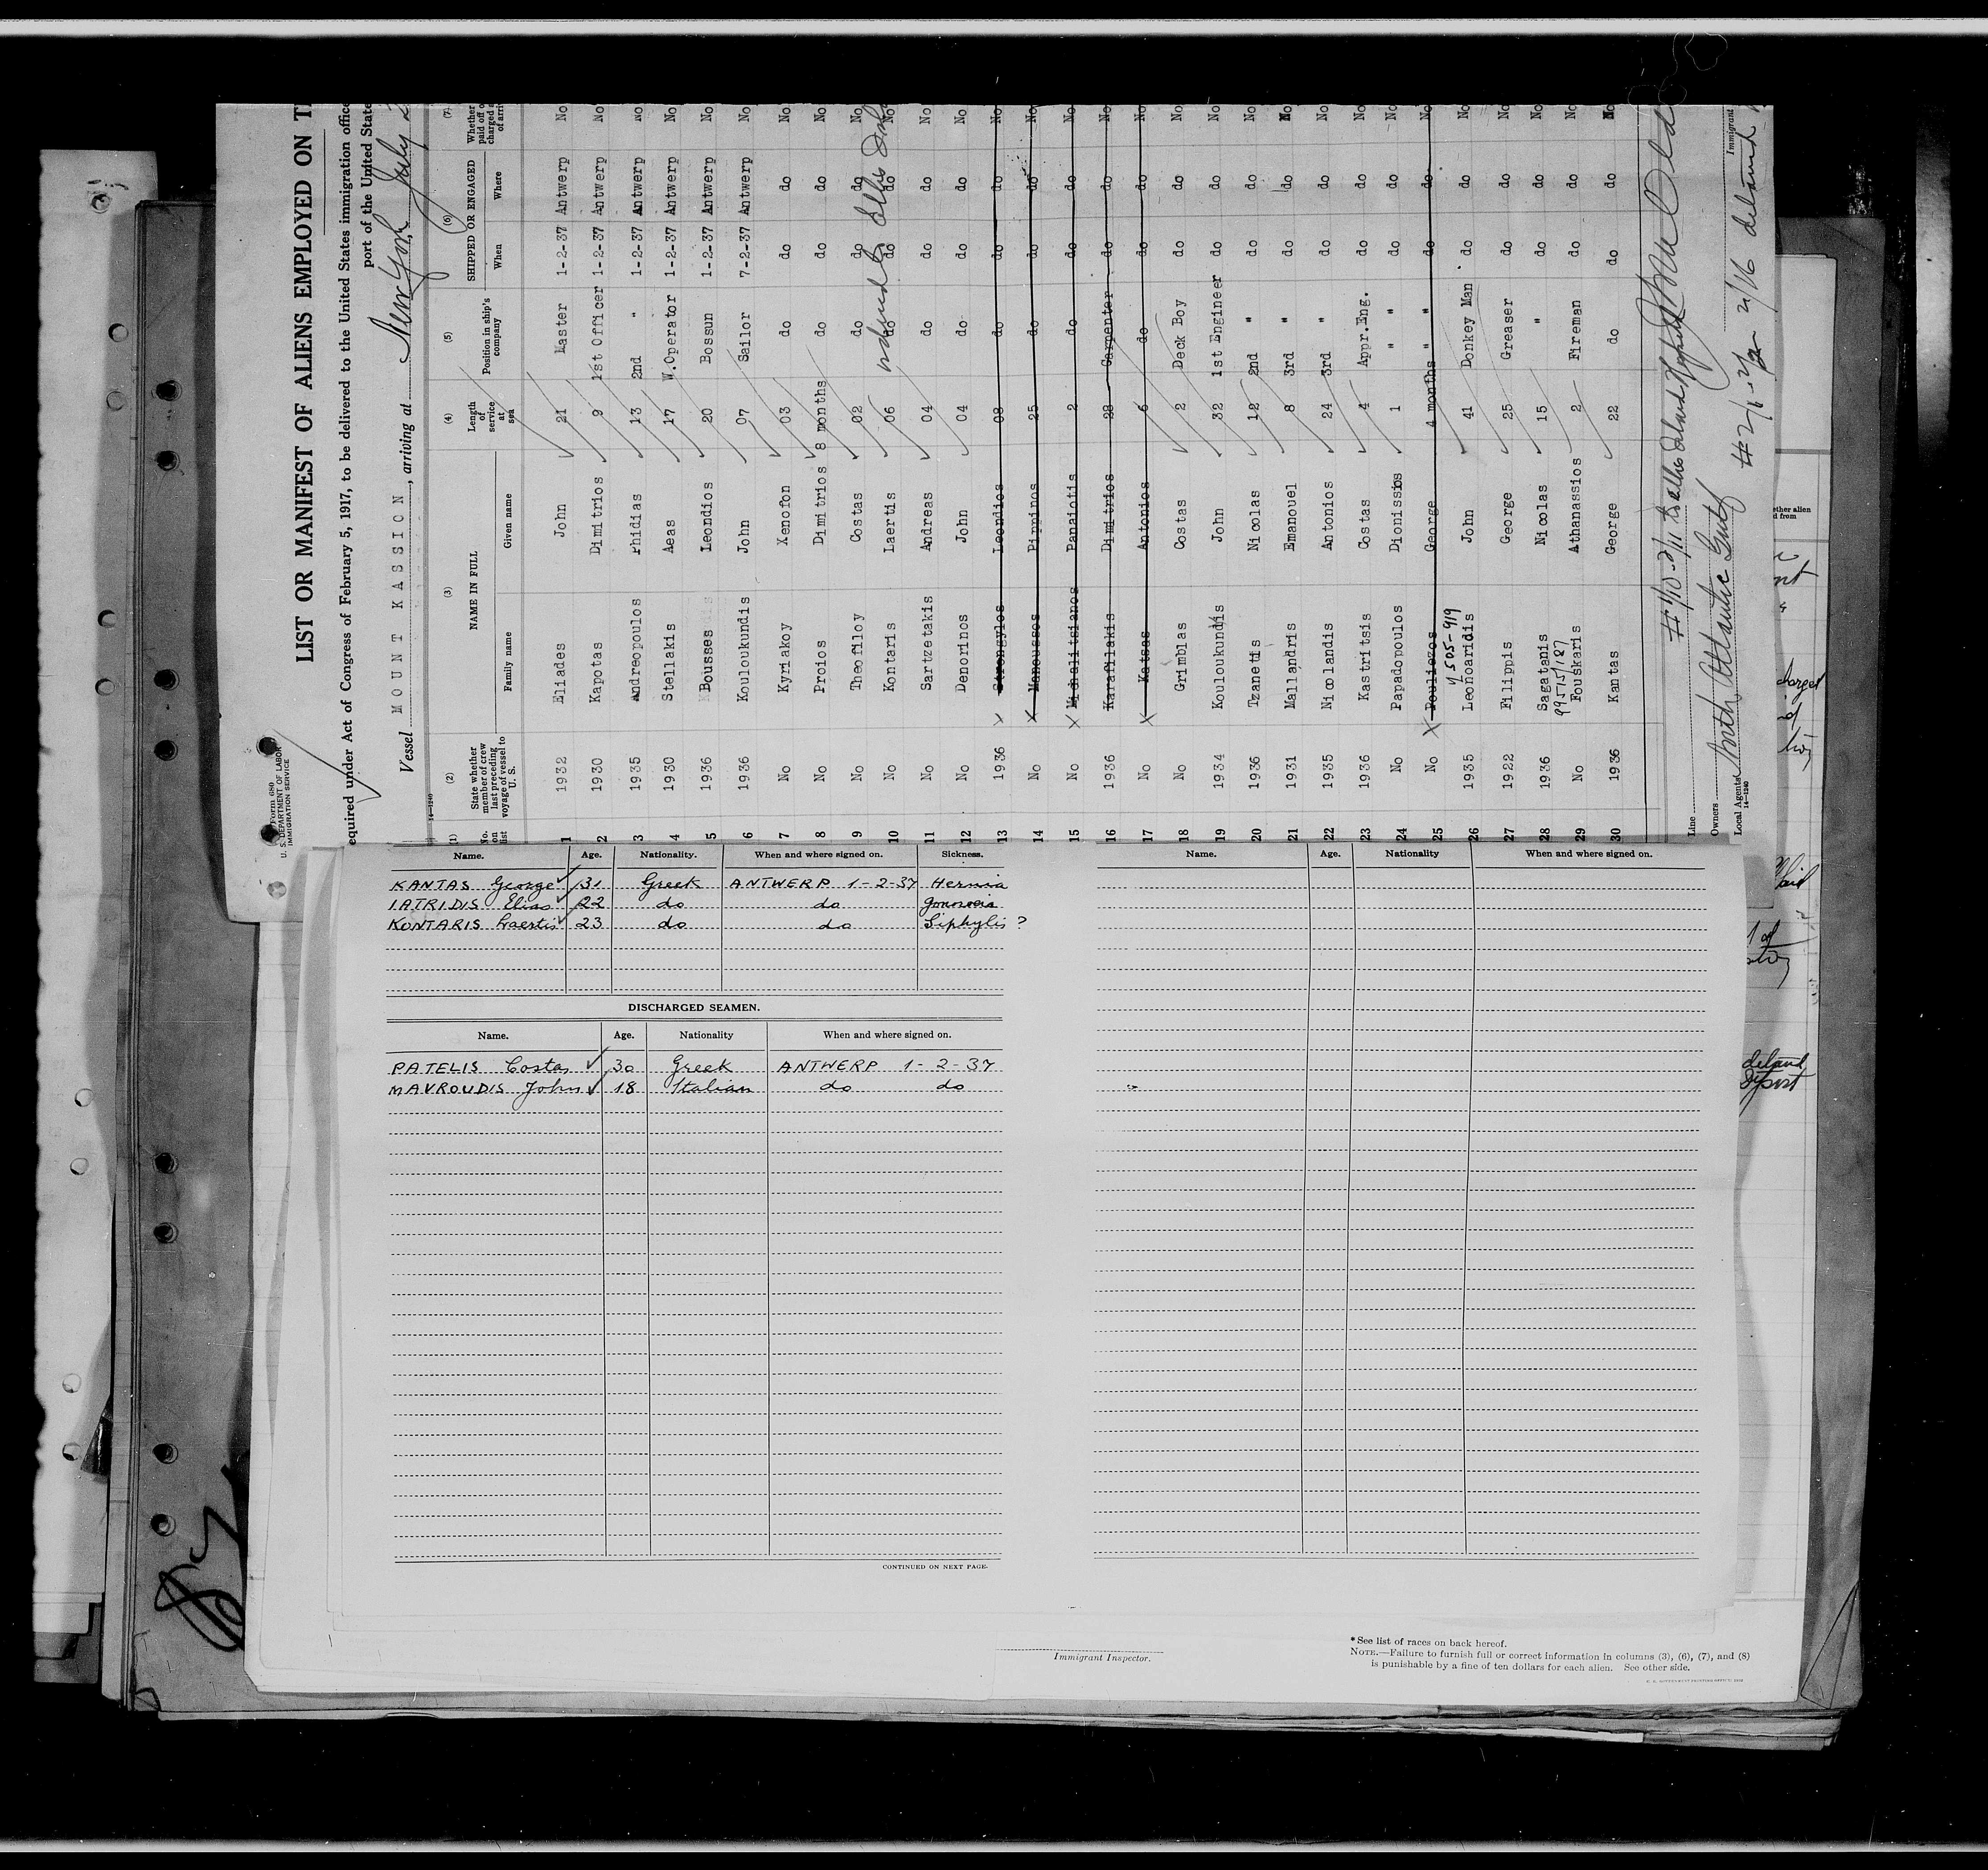 Form 680
U. S. DEPARTMENT OF LABOR
IMMIGRATION SERVICE
LIST OR MANIFEST OF ALIENS EMPLOYED ON
equired under Act of Congress of February 5, 1917, to be delivered to the United States immigration office
port of the United State
Vessel MOUNT KASSION, arriving at New York July
14—1240
(1) (2) (3) (4) (5) (6) (7)
No. on list State whether member of crew last preceding voyage of vessel to U. S. NAME IN FULL Length of service at sea Position in ship's company SHIPPED OR ENGAGED Whether paid off
Family name Given name When Where
1 1932 Eliades John 21 Master 1-2-37 Antwerp No
2 1930 Kapotas Dimitrios 9 1st Officer 1-2-37 Antwerp No
3 1935 Andreopoulos Phidias 13 2nd " 1-2-37 Antwerp No
4 1930 Stellakis Aeas 17 W.Operator 1-2-37 Antwerp No
5 1936 Bousses Leondios 20 Bossun 1-2-37 Antwerp No
6 1936 Kouloukundis John 07 Sailor 7-2-37 Antwerp No
7 No Kyriakoy Xenofon 03 do do do No
8 No Proios Dimitrios 8 months do do do No
9 No Theofiloy Costas 02 do do do No
10 No Kontaris Laertis 06 do do do No
11 No Sartzetakis Andreas 04 do do do No
12 No Denorinos John 04 do do do No
13 1936 x Strongylos Leondios 08 do do do No
14 No x Manoussos Pippinos 25 do do do No
15 No x Michalitsianos Panaiotis 2 do do do No
16 1936 Karafilakis Dimitrios 28 Carpenter do do No
17 No x Katsas Antonios 6 do do do No
18 No Grimblas Costas 2 Deck Boy do do No
19 1934 Kouloukundis John 32 1st Engineer do do No
20 1936 Tzanetis Nicolas 12 2nd " do do No
21 1931 Mallandris Emanouel 8 3rd " do do No
22 1935 Nicolandis Antonios 24 3rd " do do No
23 1936 Kastritsis Costas 4 Appr.Eng. do do No
24 No Papadopoulos Dionissios 1 " " do do No
25 No x Pouliezos George 4 months " " do do No
26 1935 Leonoaridis John 41 Donkey Man do do No
27 1922 Filippis George 25 Greaser do do No
28 1936 Sagatanis Nicolas 15 " do do No
99515/187
29 No Fouskaris Athanassios 2 Fireman do do No
30 1936 Kantas George 22 do do do No
Line
Owners North Atlantic Gulf
Local Agents
14—1240
Immigrant
Name. Age. Nationality. When and where signed on. Sickness.
KANTAS George 31 Greek ANTWERP 1-2-37 Hernia
IATRIDIS Elias 22 do do
KONTARIS Laertis 23 do do Siphylis ?
DISCHARGED SEAMEN.
Name. Age. Nationality When and where signed on.
PATELIS Costas 30 Greek ANTWERP 1-2-37
MAVROUDIS John 18 Italian do do
CONTINUED ON NEXT PAGE.
Name. Age. Nationality When and where signed on.
Immigrant Inspector.
* See list of races on back hereof.
NOTE.—Failure to furnish full or correct information in columns (3), (6), (7), and (8)
is punishable by a fine of ten dollars for each alien. See other side.